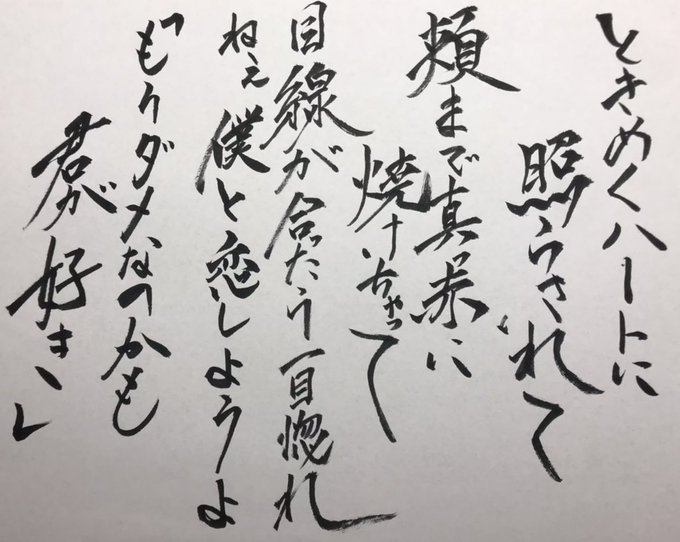 ときめくハートに
照らされて
頬まで真っ赤に
焼けちゃって
目線が合ったら一目惚れ
ねぇ僕と恋しようよ
「もうダメなのかも
君が好き」